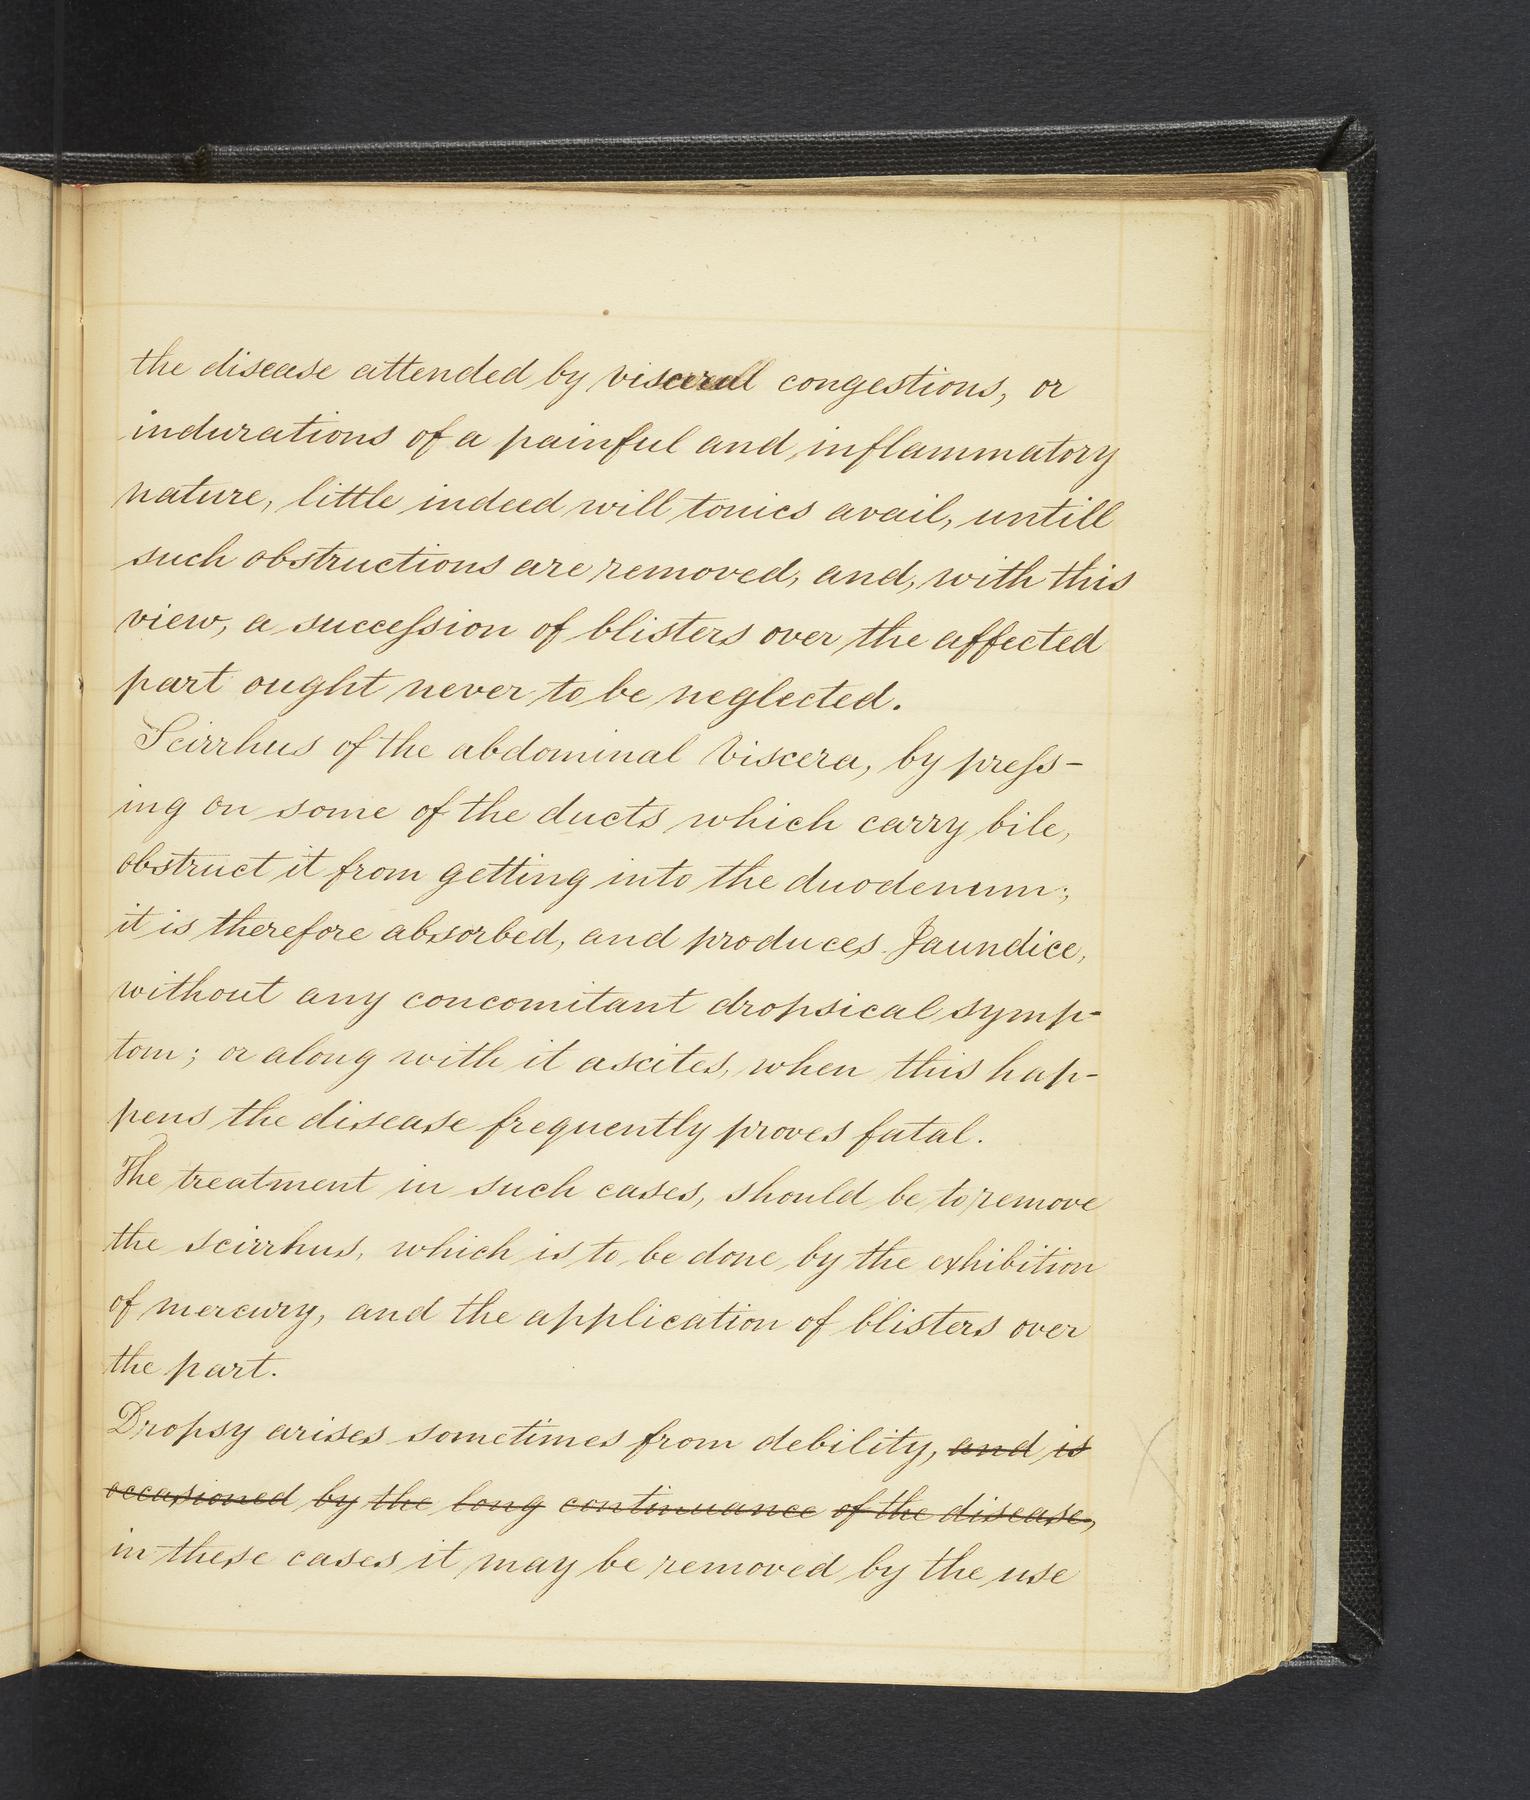 the disease attended by visceral congestions, or
indurations of a painful and inflammatory
nature, little indeed will tonics avail, untill
such obstructions are removed, and, with this
view, a succeſsion of blisters over the affected
part ought never to be neglected.
Scirrhus of the abdominal Viscera, by preſs-
ing on some of the ducts which carry bile,
obstruct it from getting into the duodenum;
it is therefore absorbed, and produces Jaundice,
without any concomitant dropsical symp-
tom; or along with it ascites, when this hap-
pens the disease frequently proves fatal.
The treatment in such cases, should be to remove
the scirrhus, which is to be done by the exhibition
of mercury, and the application of blisters over
the part.
Dropsy arises sometimes from debility, and is
occasioned by the long continuance of the disease,
in these cases it may be removed by the use